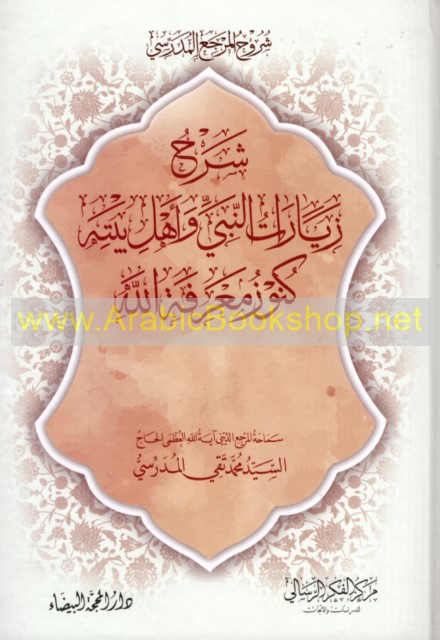 شروح المرجع المدرسي
شَرْحُ
زِيَارَاتُ النَّبِيِّ وَأَهْلِ بَيْتِهِ
كُنُوزُ مَعْرِفَةِ اللَّهِ
www.ArabicBookshop.net
سماحة المرجع الديني آية الله العظمى الحاج
السَّيِّدُ مُحَمَّد تَقِي المُدَرِّسِيُّ
مركز الفكر الرسالي
للدراسات والأبحاث
دار المحجة البيضاء